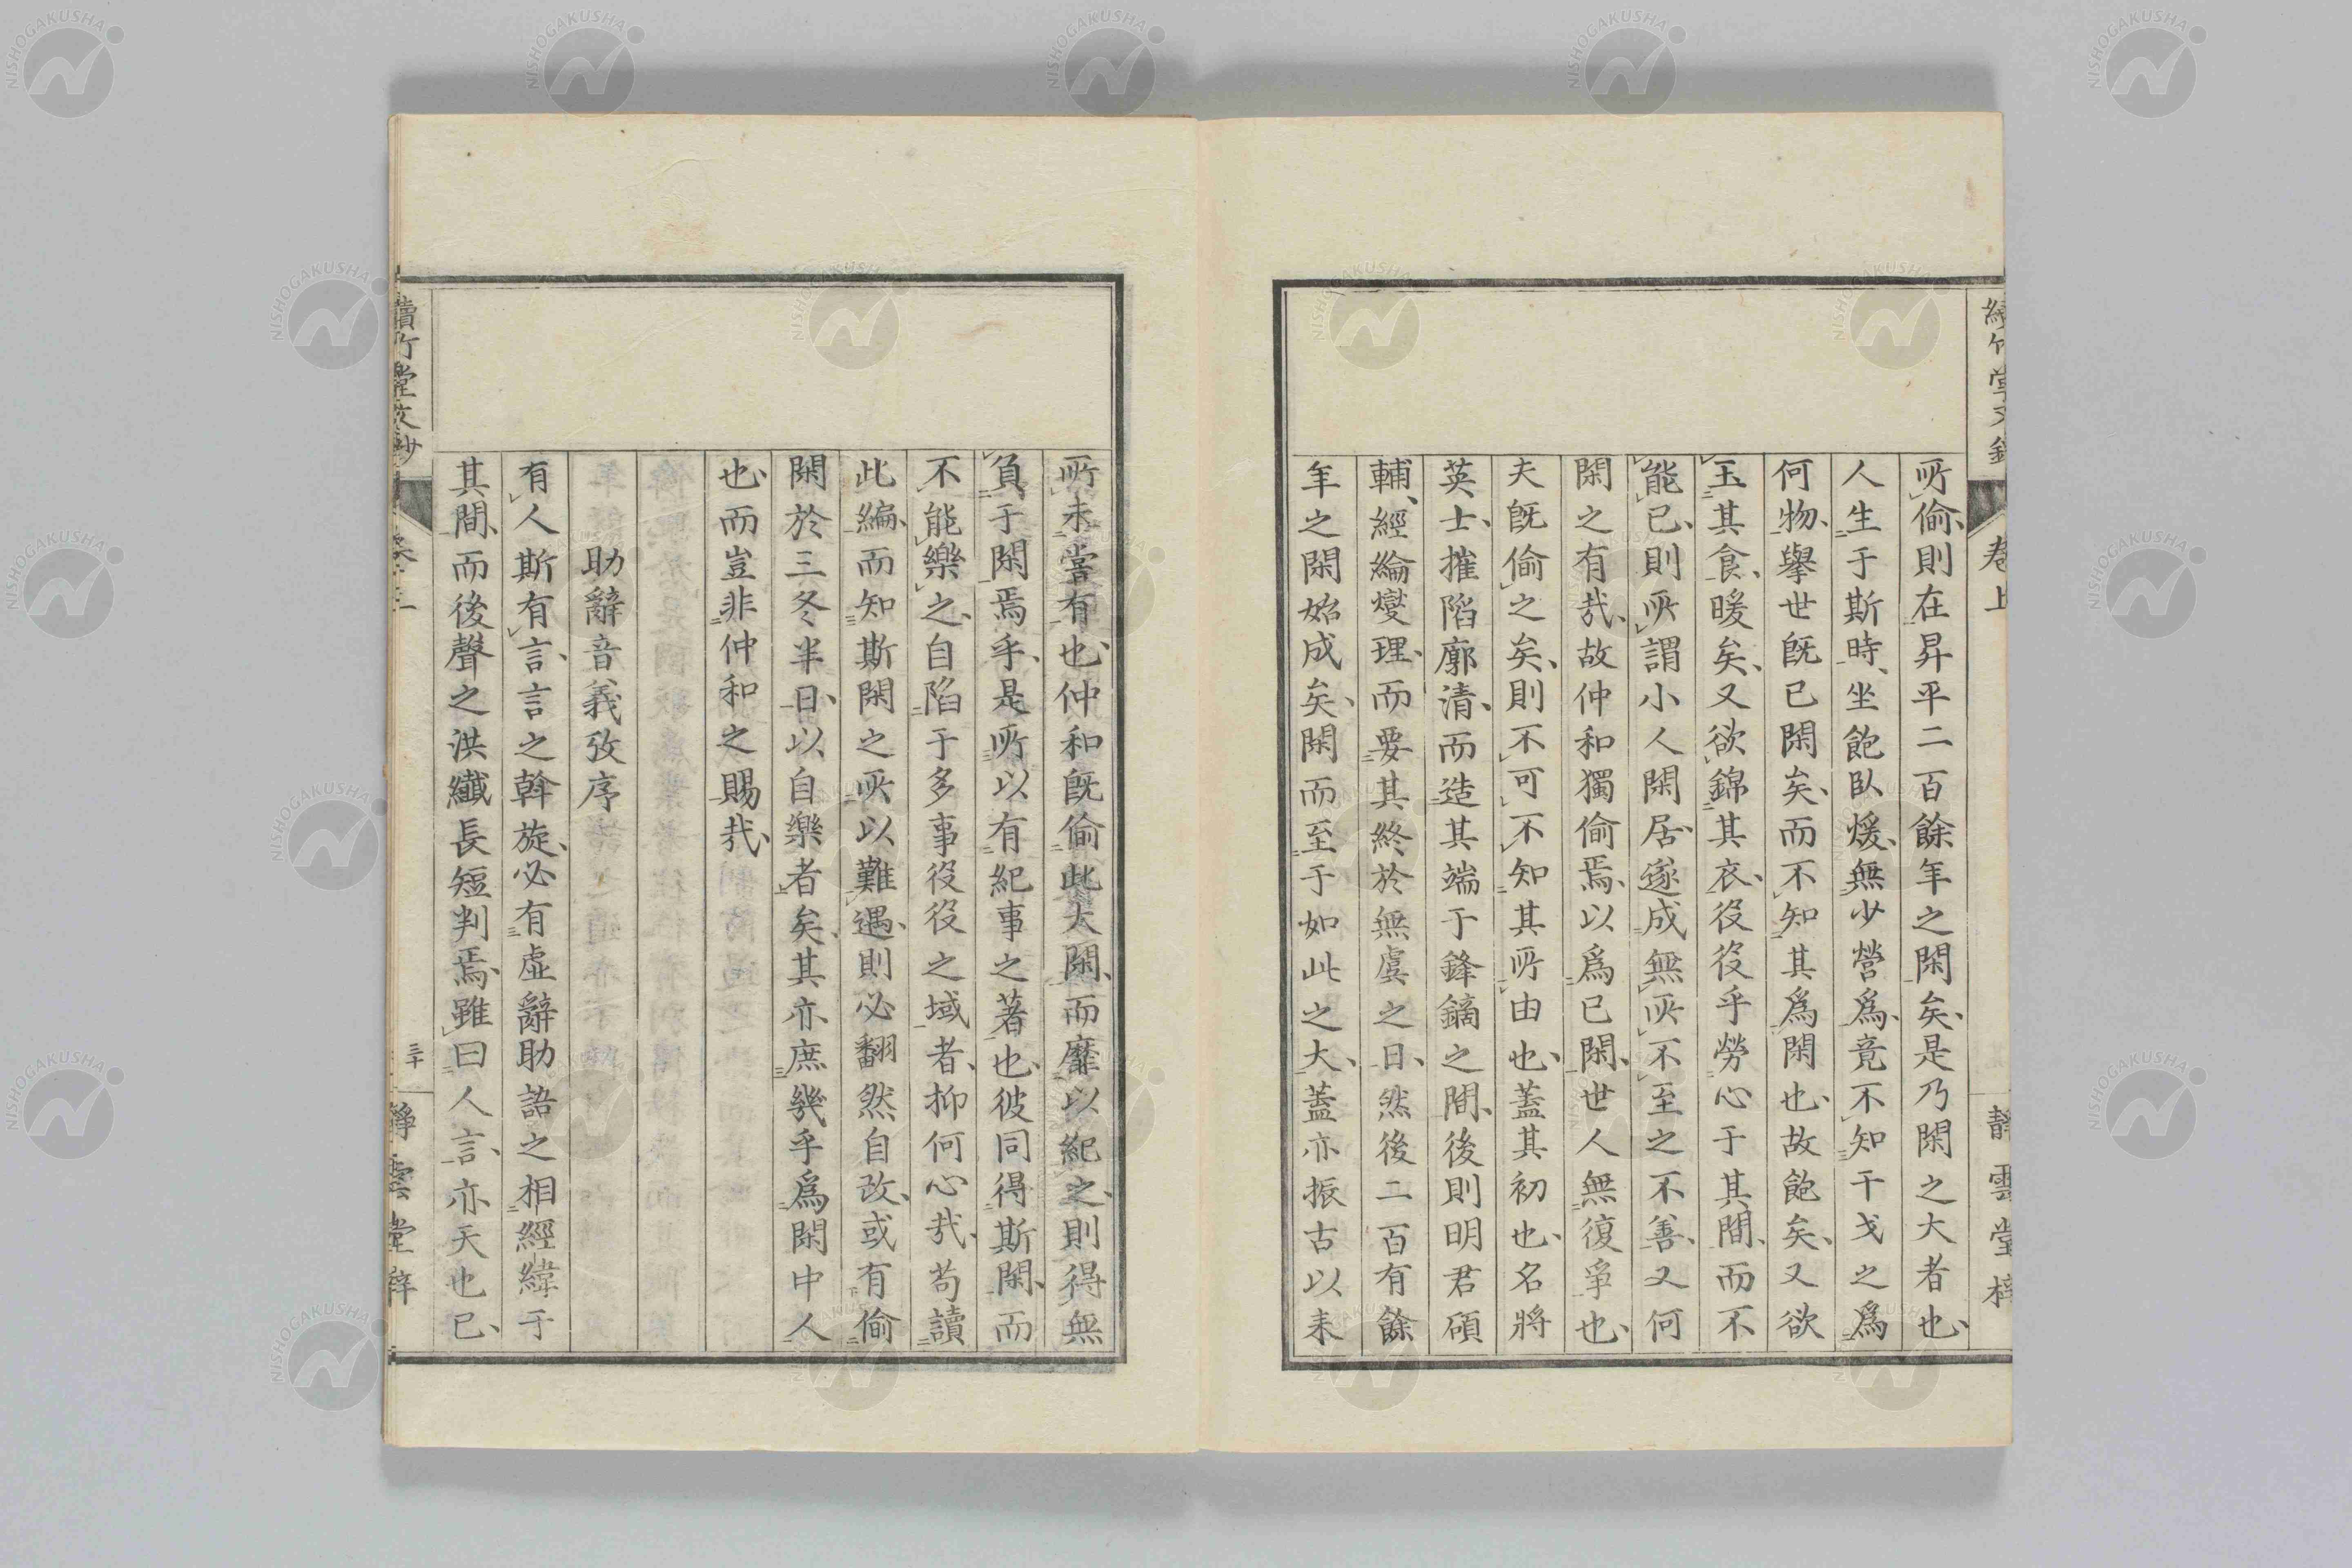 所偷、則在昇平二百餘年之閑矣、是乃閑之大者也、
人生于斯時、坐飽臥煖、無少營爲、竟不知干戈之爲
何物、擧世既已閑矣、而不知其爲閑也、故飽矣、又欲
玉其食、暖矣、又欲錦其衣、役役乎勞心于其間、而不
能已、則所謂小人閑居、遂成無所不至之不善、又何
閑之有㦲、故仲和獨偷焉、以爲已閑、世人無復爭也、
夫既偷之矣、則不可不知其所由也、蓋其初也、名將
英士、摧陷廓清、而造其端于鋒鏑之間、後則明君碩
輔、經綸燮理、而要其終於無虞之日、然後二百有餘
年之閑始成矣、閑而至于如此之大、蓋亦振古以来
所未嘗有也、仲和既偷此大閑、而靡以紀之、則得無
負于閑焉乎、是所以有紀事之著也、彼同得斯閑、而
不能樂之、自陷于多事役役之域者、抑何心㦲、苟讀
此編、而知斯閑之所以難遇、則必翻然自改、或有偷
閑於三冬半日、以自樂者矣、其亦庶幾乎爲閑中人
也、而豈非仲和之賜㦲、
助辭音義攷序
有人斯有言、言之斡旋、必有虛辭助語之相經緯于
其間、而後聲之洪纖長短判焉、雖曰人言、亦天也已、
續竹堂文鈔
三十
卷上
靜雲堂梓